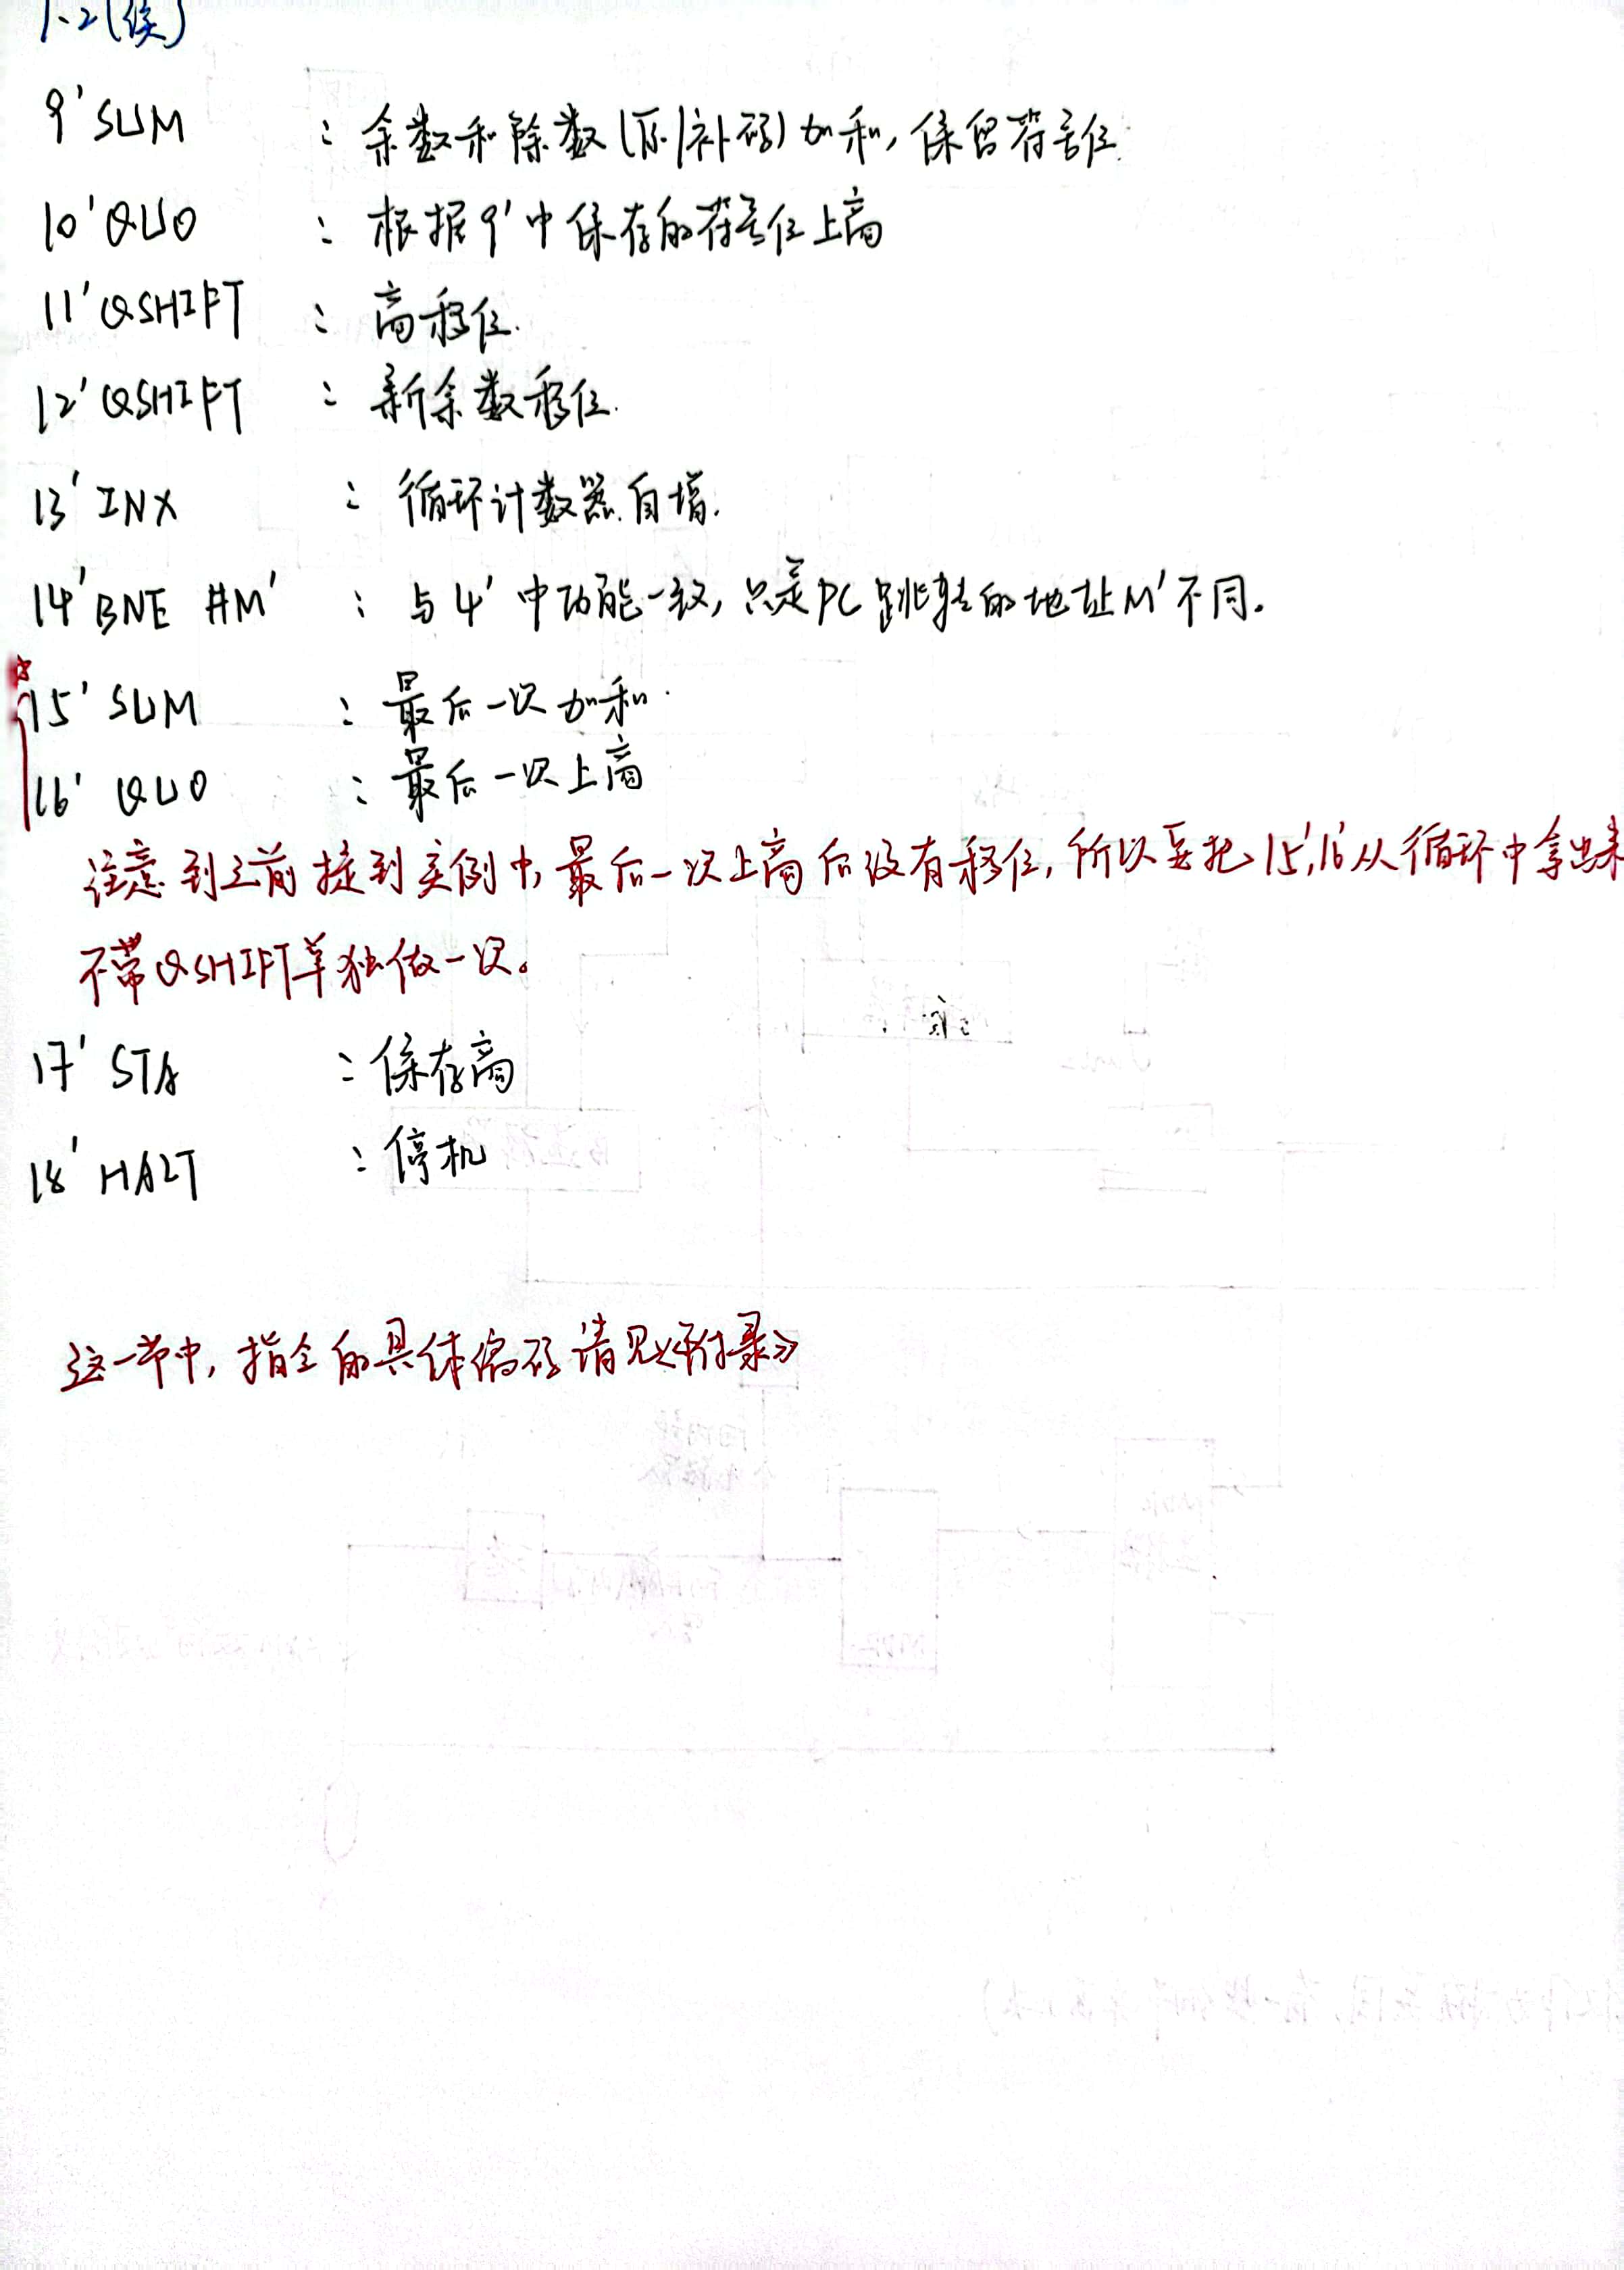 1.2(续)
9' SUM : 余数和除数(原/补码)加和,保留符号位.
10' QUO : 根据9'中保存的符号位上商
11' QSHIFT : 商移位.
12' QSHIFT : 新余数移位.
13' INX : 循环计数器自增.
14' BNE #M' : 与4'中功能一致,只是PC跳转的地址M'不同。
15' SUM : 最后一次加和.
16' QUO : 最后一次上商
注意到之前提到实例中,最后一次上商后没有移位,所以要把15',16'从循环中拿出来
不带QSHIFT单独做一次。
17' STA : 保存商
18' HALT : 停机
这一节中,指令的具体编码请见《附录》